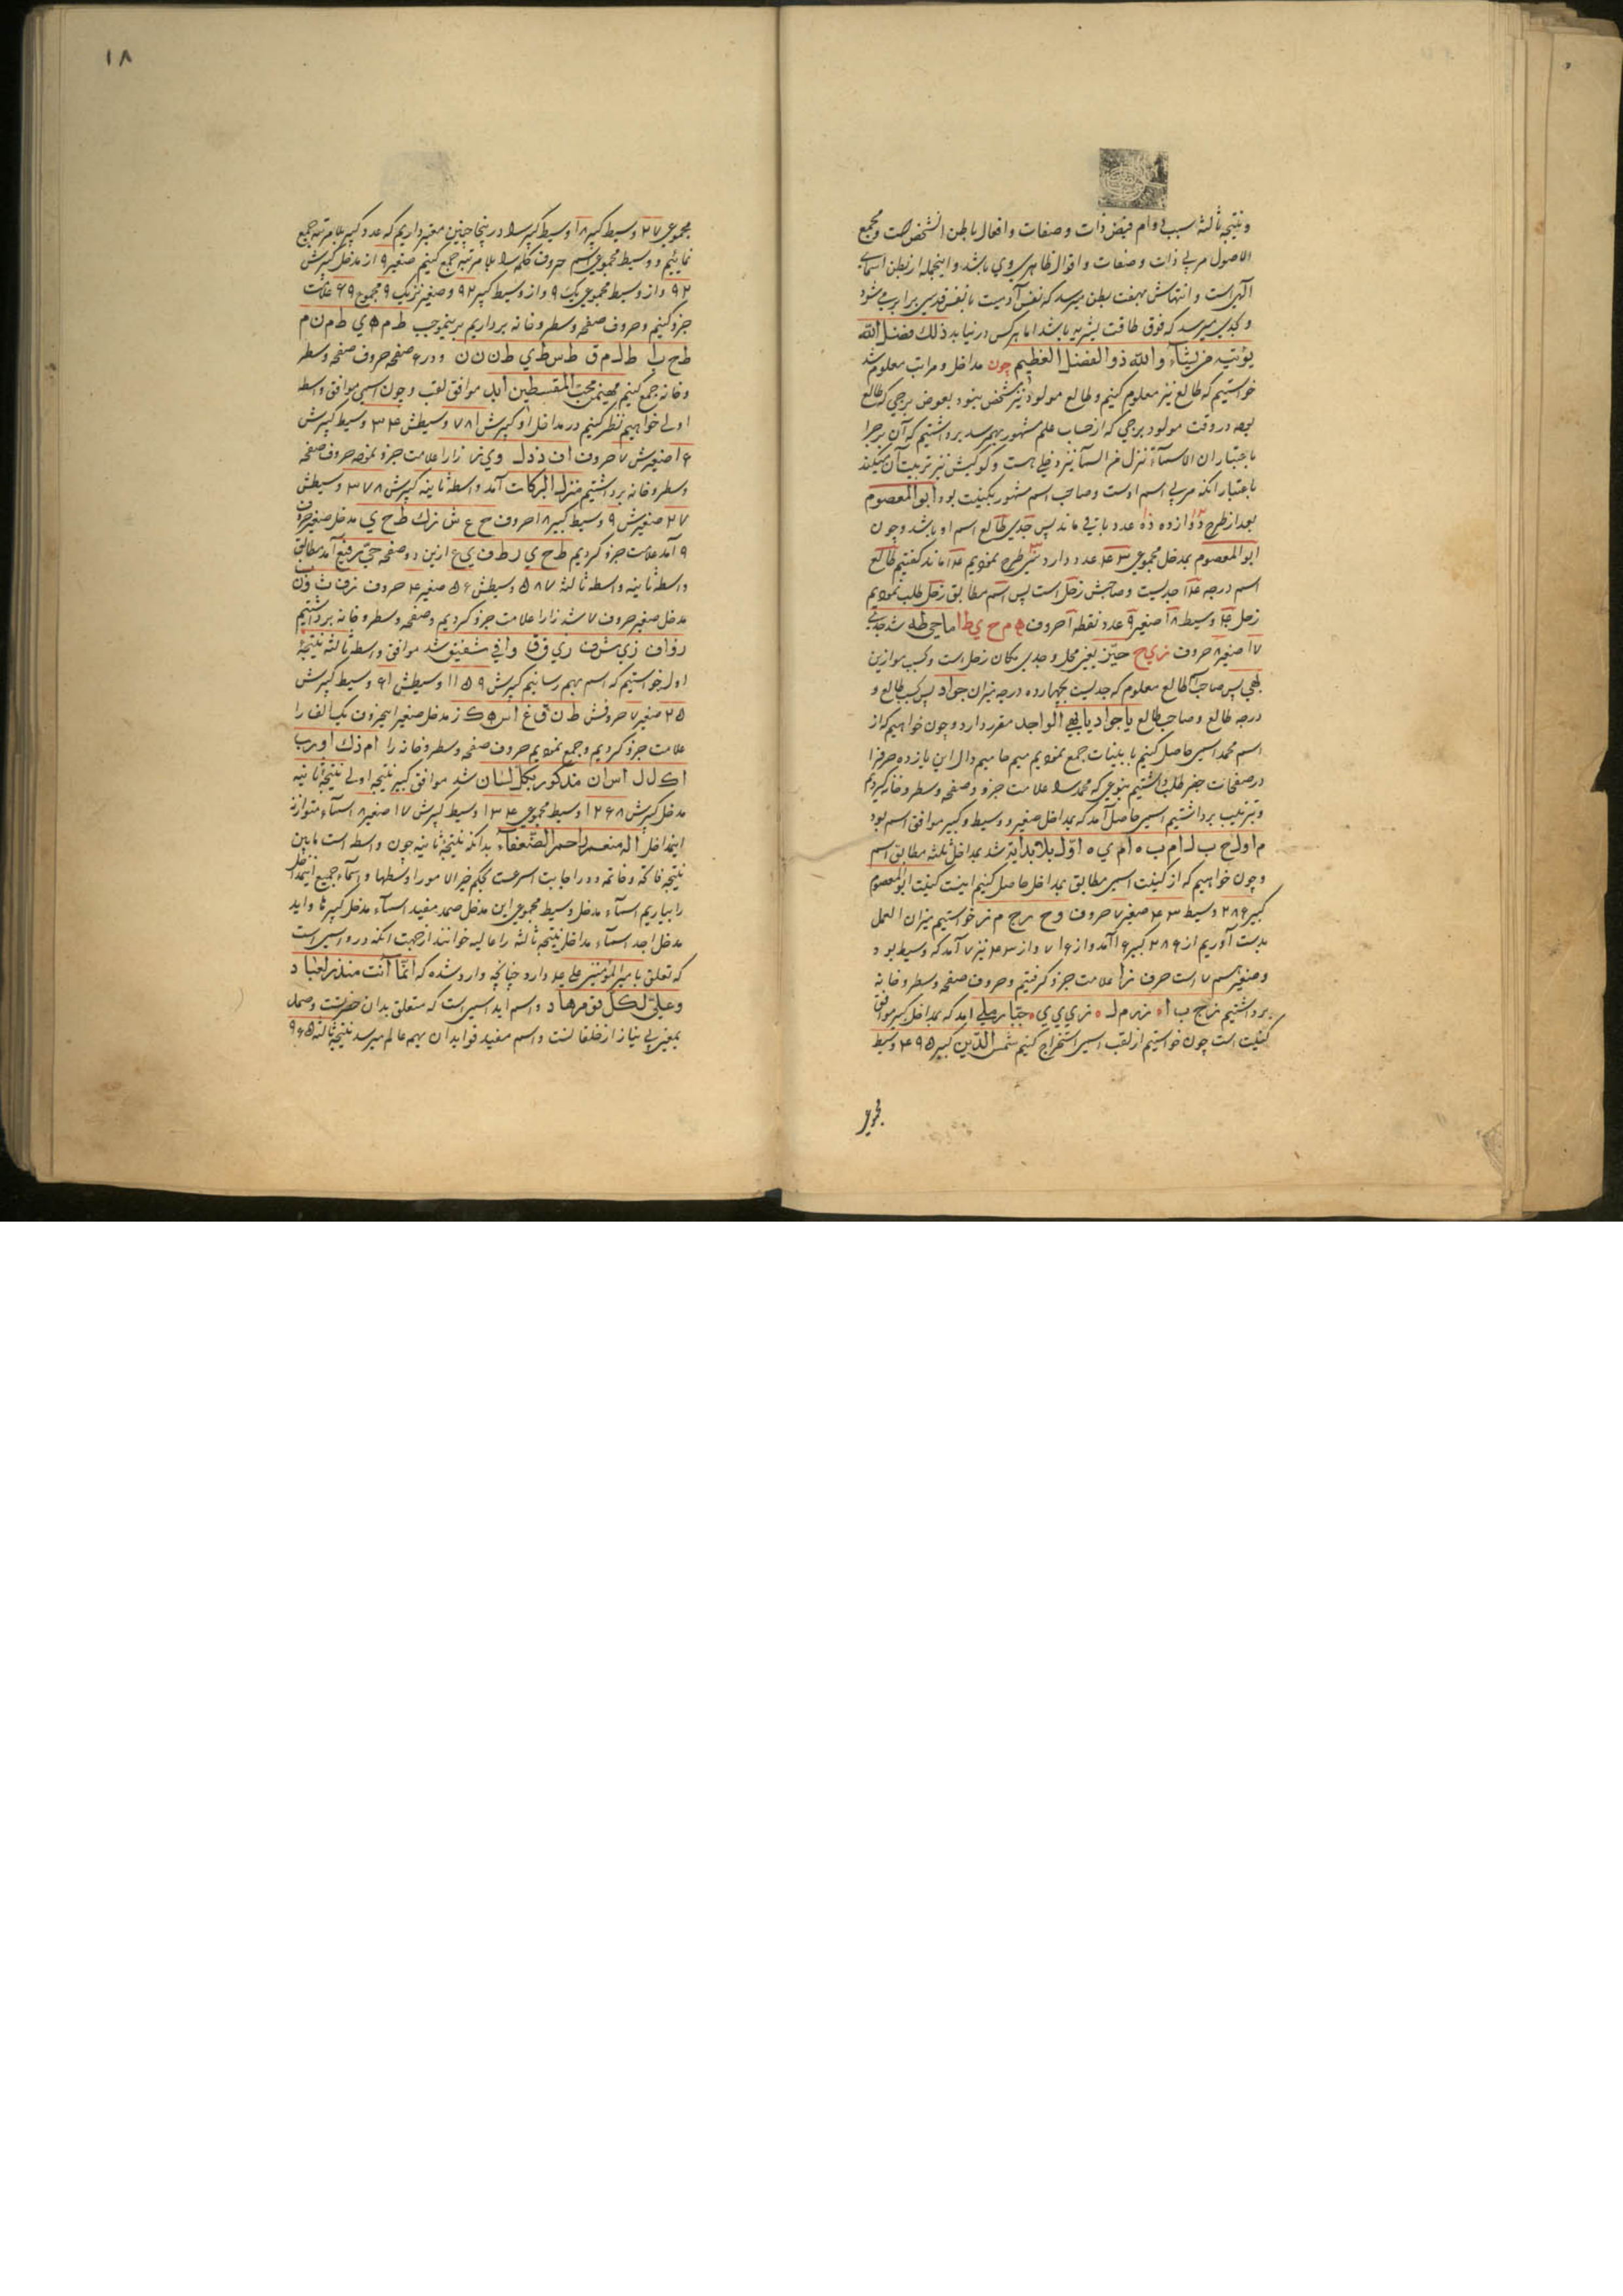 ونتیجه ثالثه سبب دوام فیض ذات وصفات وافعال باطن انشخص است ومجمع
الاصول مربی ذات وصفات واقوال ظاهر وی باشد واینجمله از بطن اسمای
الهی است وانتهاش بهفت بطن میرسد که نفس آدمیت با نفس قدسی برابر میشود
وبجدی میرسد که فوق طاقت بشریه باشد اما هرکس در نیابد ذلك فضل الله
یؤتیه من یشاء والله ذو الفضل العظیم چون مداخل ومراتب معلوم شد
خواستیم که طالع نیز معلوم کنیم وطالع مولود نیز مشخص نبود بعوض برجی که طالع
بوده در وقت مولود برجی که از حساب علم مشهور بهم رسد برداشتیم که آن برج را
باعتبار ان الاسماء تنزل من السماء نیز دخلی هست وکوکبش نیز تربیت آن میکند
باعتبار آنکه مربی اسم اوست وصاحب اسم مشهور بکنیت بود ابو المعصوم
بعد از طرح دوازده ده عدد باقی ماند پس جدی طالع اسم او باشد وچون
ابو المعصوم بمدخل مجموعی عدد دارد سی طرح نمودیم ماند گفتیم طالع
اسم درجه جدیست وصاحبش زحل است پس اسم مطابق زحل طلب نمودیم
زحل وسیط ۱۸ صغیر ۹ عدد نقطه ۱ حروف ه م ح ی ط ا ماحی طه شد
۱۷ صغیر ۸ حروف ز ی ح حیّز یعنی محل وجدی مکان زحل است وبحسب موازین
پس صاحب طالع معلوم که جدیست بچهارده درجه میزان جواد پس بحسب طالع و
درجه طالع وصاحب طالع یا جواد یا الواجد مقرر دارد وچون خواهیم که از
اسم محمد اسمی حاصل کنیم با بینات جمع نمودیم میم حا میم دال این یازده حرف را
در صفحات جفر طلب داشتیم بنوعی که محمد را علامت جزو وصفحه وسطر وخانه کردیم
وبترتیب برداشتیم اسمی حاصل آمد که بمداخل صغیر ووسیط وکبیر موافق اسم بود
م ا و ل ح ب ل ا م ب ه ا م ی ه اوّل بلا بدایه شد بمداخل ثلثه مطابق اسم
وچون خواهیم که از کنیت اسمی مطابق بمداخل حاصل کنیم اینست کنیت ابو المعصوم
کبیر ۲۸۶ وسیط ۴۳ صغیر ۷ حروف و ح خواستیم میزان العمل
بدست آوریم از ۲۸۶ کبیر ۱۶ آمد واز ۱۶ ۷ واز ۴۳ نیز ۷ آمد که وسیط بود
وصغیر هم ۷ است حرف ز را علامت جزو گرفتیم وحروف صفحه وسطر وخانه
برداشتیم جبّار آمد که بمداخل کبیر موافق
کنیت است چون خواستیم از لقب اسمی استخراج کنیم شمس الدین کبیر ۴۹۵ وسیط
مجموعی
۱۸
مجموعی ۲۷ وسیط کبیر ۱۸ وسیط کبیر را در اینجا چنین معتبر داریم که عدد کبیر بلا مرتبه جمع
نمائیم ووسیط مجموعی اسم حروف کلمه را بلا مرتبه جمع کنیم صغیر ۹ از مدخل کبیرش
۹۲ واز وسیط مجموعی یك ۹ واز وسیط کبیر ۹۲ وصغیر نزدیك ۹ مجموع ۶۹ علامت
جزو کنیم وحروف صفحه وسطر وخانه برداریم برینموجب ط م ه ی ط م ن م
ط ح ب ا ط ل م ق ط س ط ی ط ن ن ن ودر ۶ صفحه حروف صفحه وسطر
وخانه جمع کنیم مهیمن محب المقسطین ابدا موافق لقب وچون اسمی موافق واسطه
اولی خواهیم نظر کنیم در مداخل او کبیرش ۷۸۱ وسیطش ۳۴ وسیط کبیرش
۱۶ صغیرش ۷ حروف ا ف ذ د ل و ی ز ز را علامت جزو نموده حروف صفحه
وسطر وخانه برداشتیم منزل البرکات آمد واسطه ثانیه کبیرش ۳۷۸ وسیطش
۲۷ صغیرش ۹ وسیط کبیر ۱۸ حروف ح ع ش ز ك ط ح ی مدخل صغیر حروف
۹ آمد علامت جزو کردیم ط ح ی ر ط ف ی ع ازین دو صفحه حیّ رفیع آمد مطابق
واسطه ثانیه واسطه ثالثه ۵۸۷ وسیطش ۵۶ صغیر ۴ حروف
مدخل صغیر حروف ۷ شد ز را علامت جزو کردیم وصفحه وسطر وخانه برداشتیم
ز و ا ف ز ی ش ف ز ی ق ق وافی شفیق شد موافق واسطه ثالثه نتیجهٔ
اول خواستیم که اسم بهم رسانیم کبیرش ۱۱۵۹ وسیطش ۶۱ وسیط کبیرش
۲۵ صغیر ۷ حروفش ط ن ق غ ا س ه ك ز مدخل صغیر این حروف یك الف را
علامت جزو کردیم وجمع نمودیم حروف صفحه وسطر وخانه را ا م ذ ك ا و ر ب
ا ك ل ل ا س ا ن مذکور بکل لسان شد موافق کبیر نتیجه اولی نتیجهٔ ثانیه
مدخل کبیرش ۱۲۶۸ وسیط مجموعی ۱۳۴ وسیط کبیرش ۱۷ صغیر ۸ اسماء متوازنه
اینمداخل اله منعم راحم الضعفاء بدانکه نتیجهٔ ثانیه چون واسطه است مابین
نتیجه فاتحه وخاتمه ودر اجابت اسرعست بحکم خیر الامور اوسطها واسماء جمیع اینمداخل
را بیاریم اسماء مدخل وسیط مجموعی این مدخل صمد مفید اسماء مدخل کبیر
مدخل اجد اسماء مداخل نتیجه ثالثه را عالیه خوانند از جهت آنکه درو اسمی است
که تعلق بامیر المؤمنین علی ع دارد چنانچه وارد شده که انّما انت منذر العباد
وعلیّ لکل قوم هاد واسم اید اسمی است که متعلق بدان حضرتست وصمد
بمعنی بی نیاز از خلقانست واسم مفید فواید آن بهمه عالم میرسد نتیجهٔ ثالثه ۹۶۵